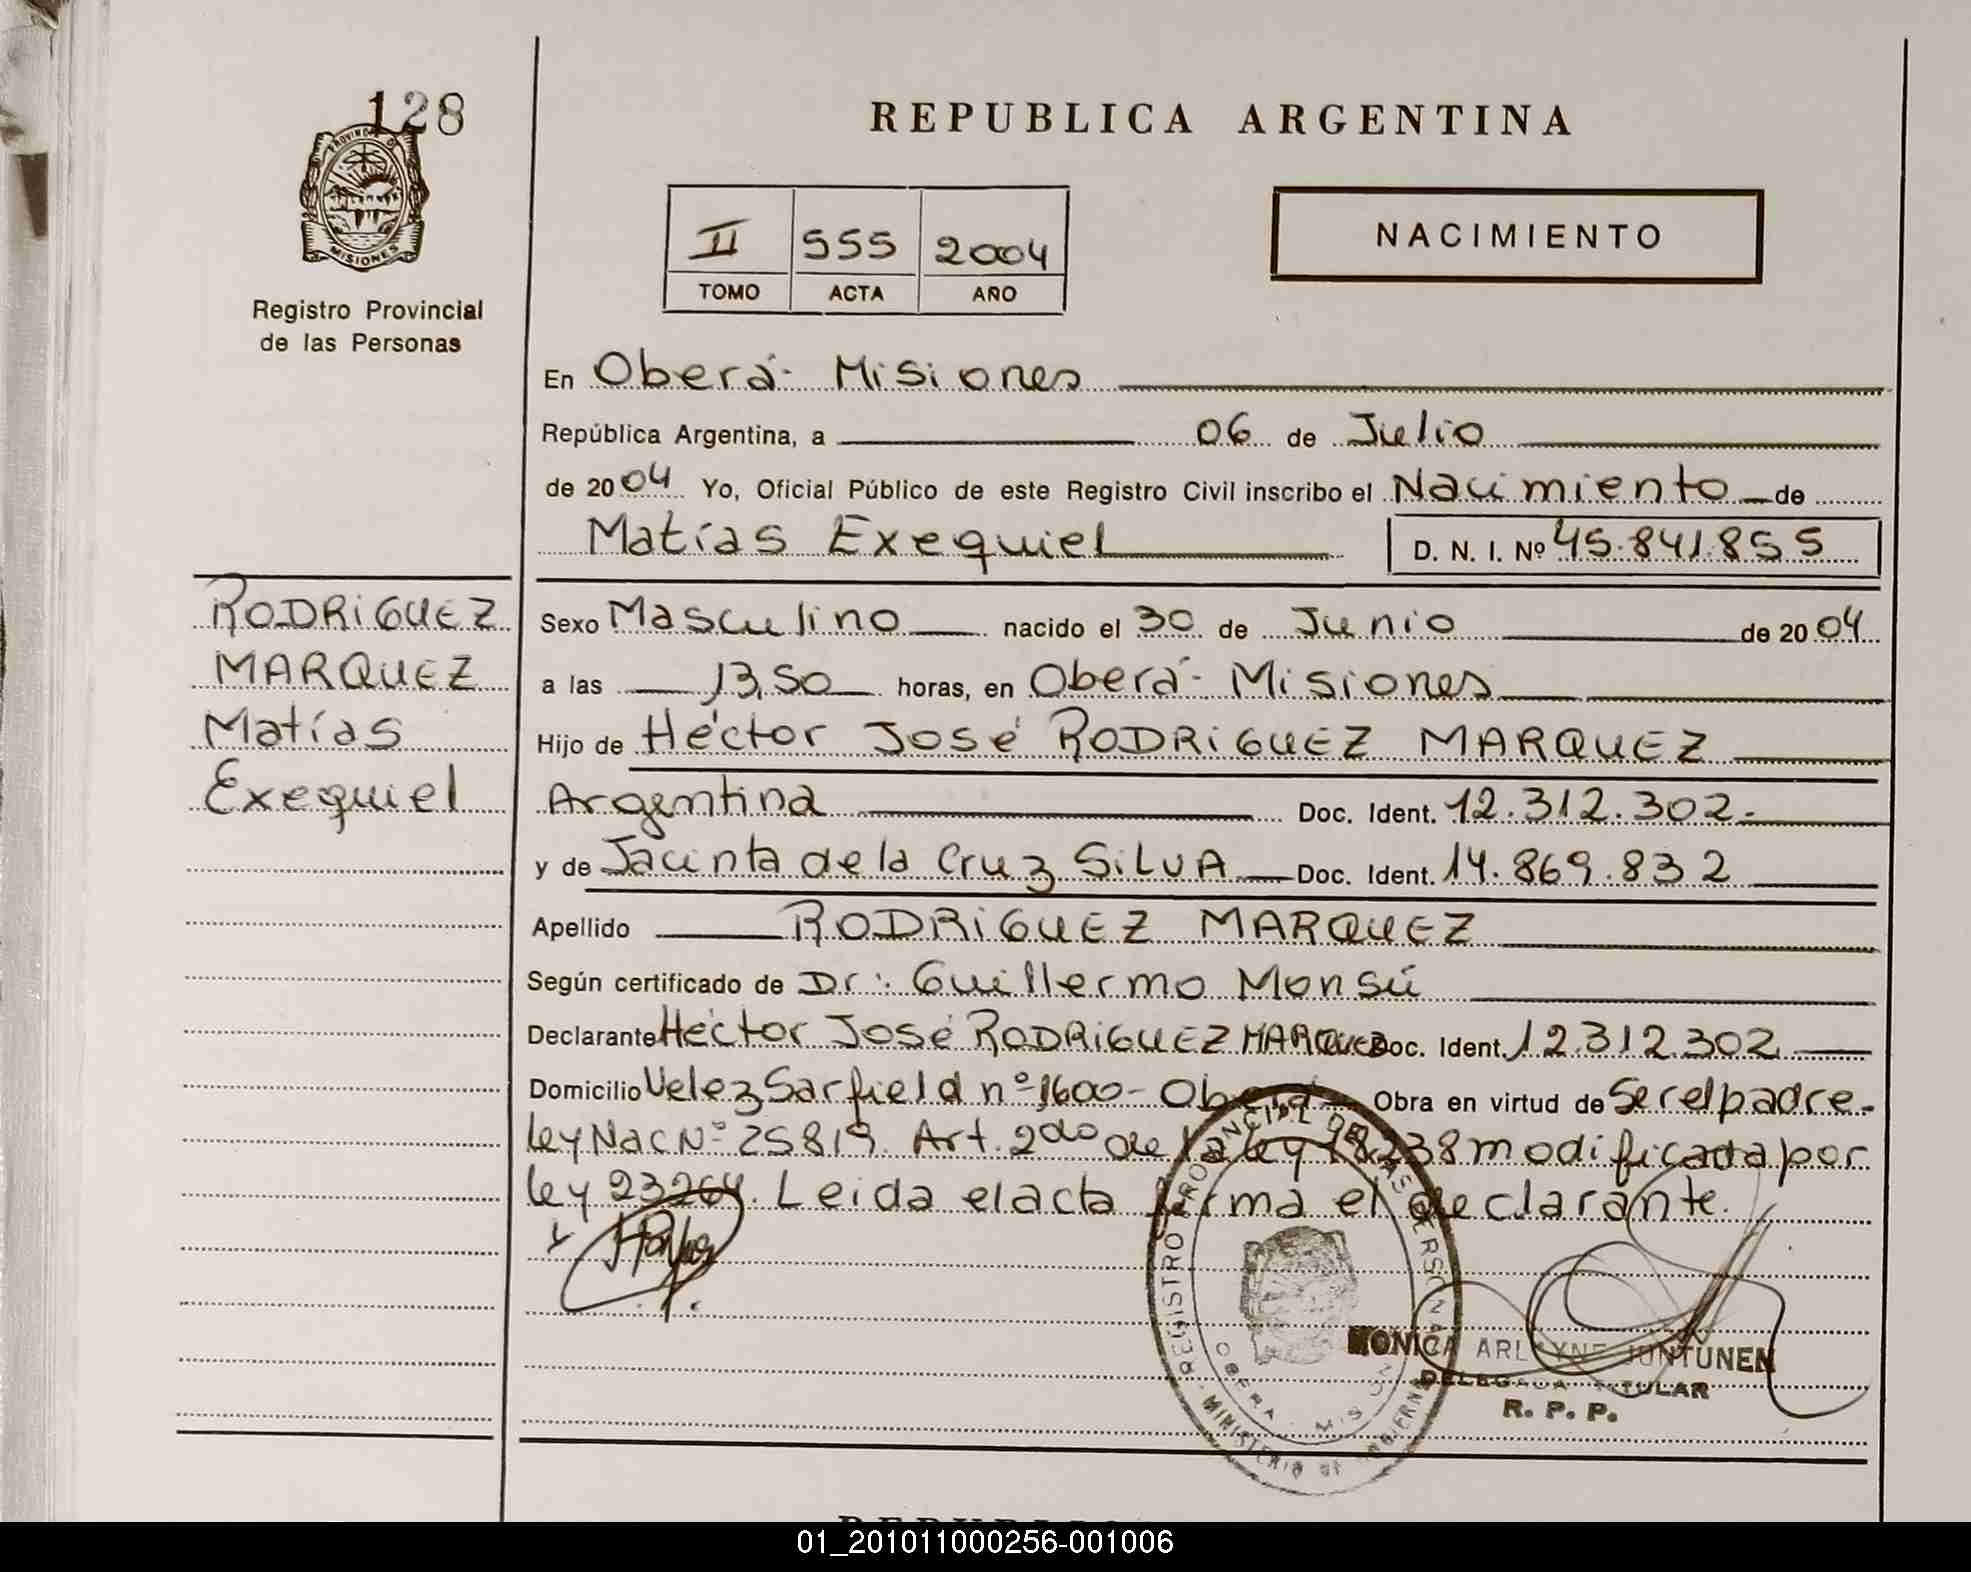 128
PROVINCIA DE
MISIONES
Registro Provincial
de las Personas
RODRIGUEZ
MARQUEZ
Matías
Exequiel
REPUBLICA ARGENTINA
II 555 2004
TOMO ACTA AÑO
NACIMIENTO
En Oberá - Misiones
República Argentina, a 06 de Julio
de 2004 Yo, Oficial Público de este Registro Civil inscribo el Nacimiento de
Matías Exequiel D. N. I. Nº 45.841.855
Sexo Masculino nacido el 30 de Junio de 2004
a las 13,50 horas, en Oberá - Misiones
Hijo de Héctor José RODRIGUEZ MARQUEZ
Argentina Doc. Ident. 12.312.302.-
y de Jacinta de la Cruz SILVA Doc. Ident. 14.869.832
Apellido RODRIGUEZ MARQUEZ
Según certificado de Dr: Guillermo Monsú
Declarante Héctor José RODRIGUEZ MARQUEZ Doc. Ident. 12.312.302
Domicilio Velez Sarfield nº 1600 - Oberá - Obra en virtud de Ser el padre -
Ley Nac Nº 25819. Art. 2do de la Ley 18238 modificada por
Ley 23264. Leida el acta firma el declarante.
REGISTRO PROVINCIAL DE LAS PERSONAS
OBERA - MISIONES
MINISTERIO DE GOBIERNO
MONICA ARLYNE JUNTUNEN
DELEGADA TITULAR
R. P. P.
01_201011000256-001006